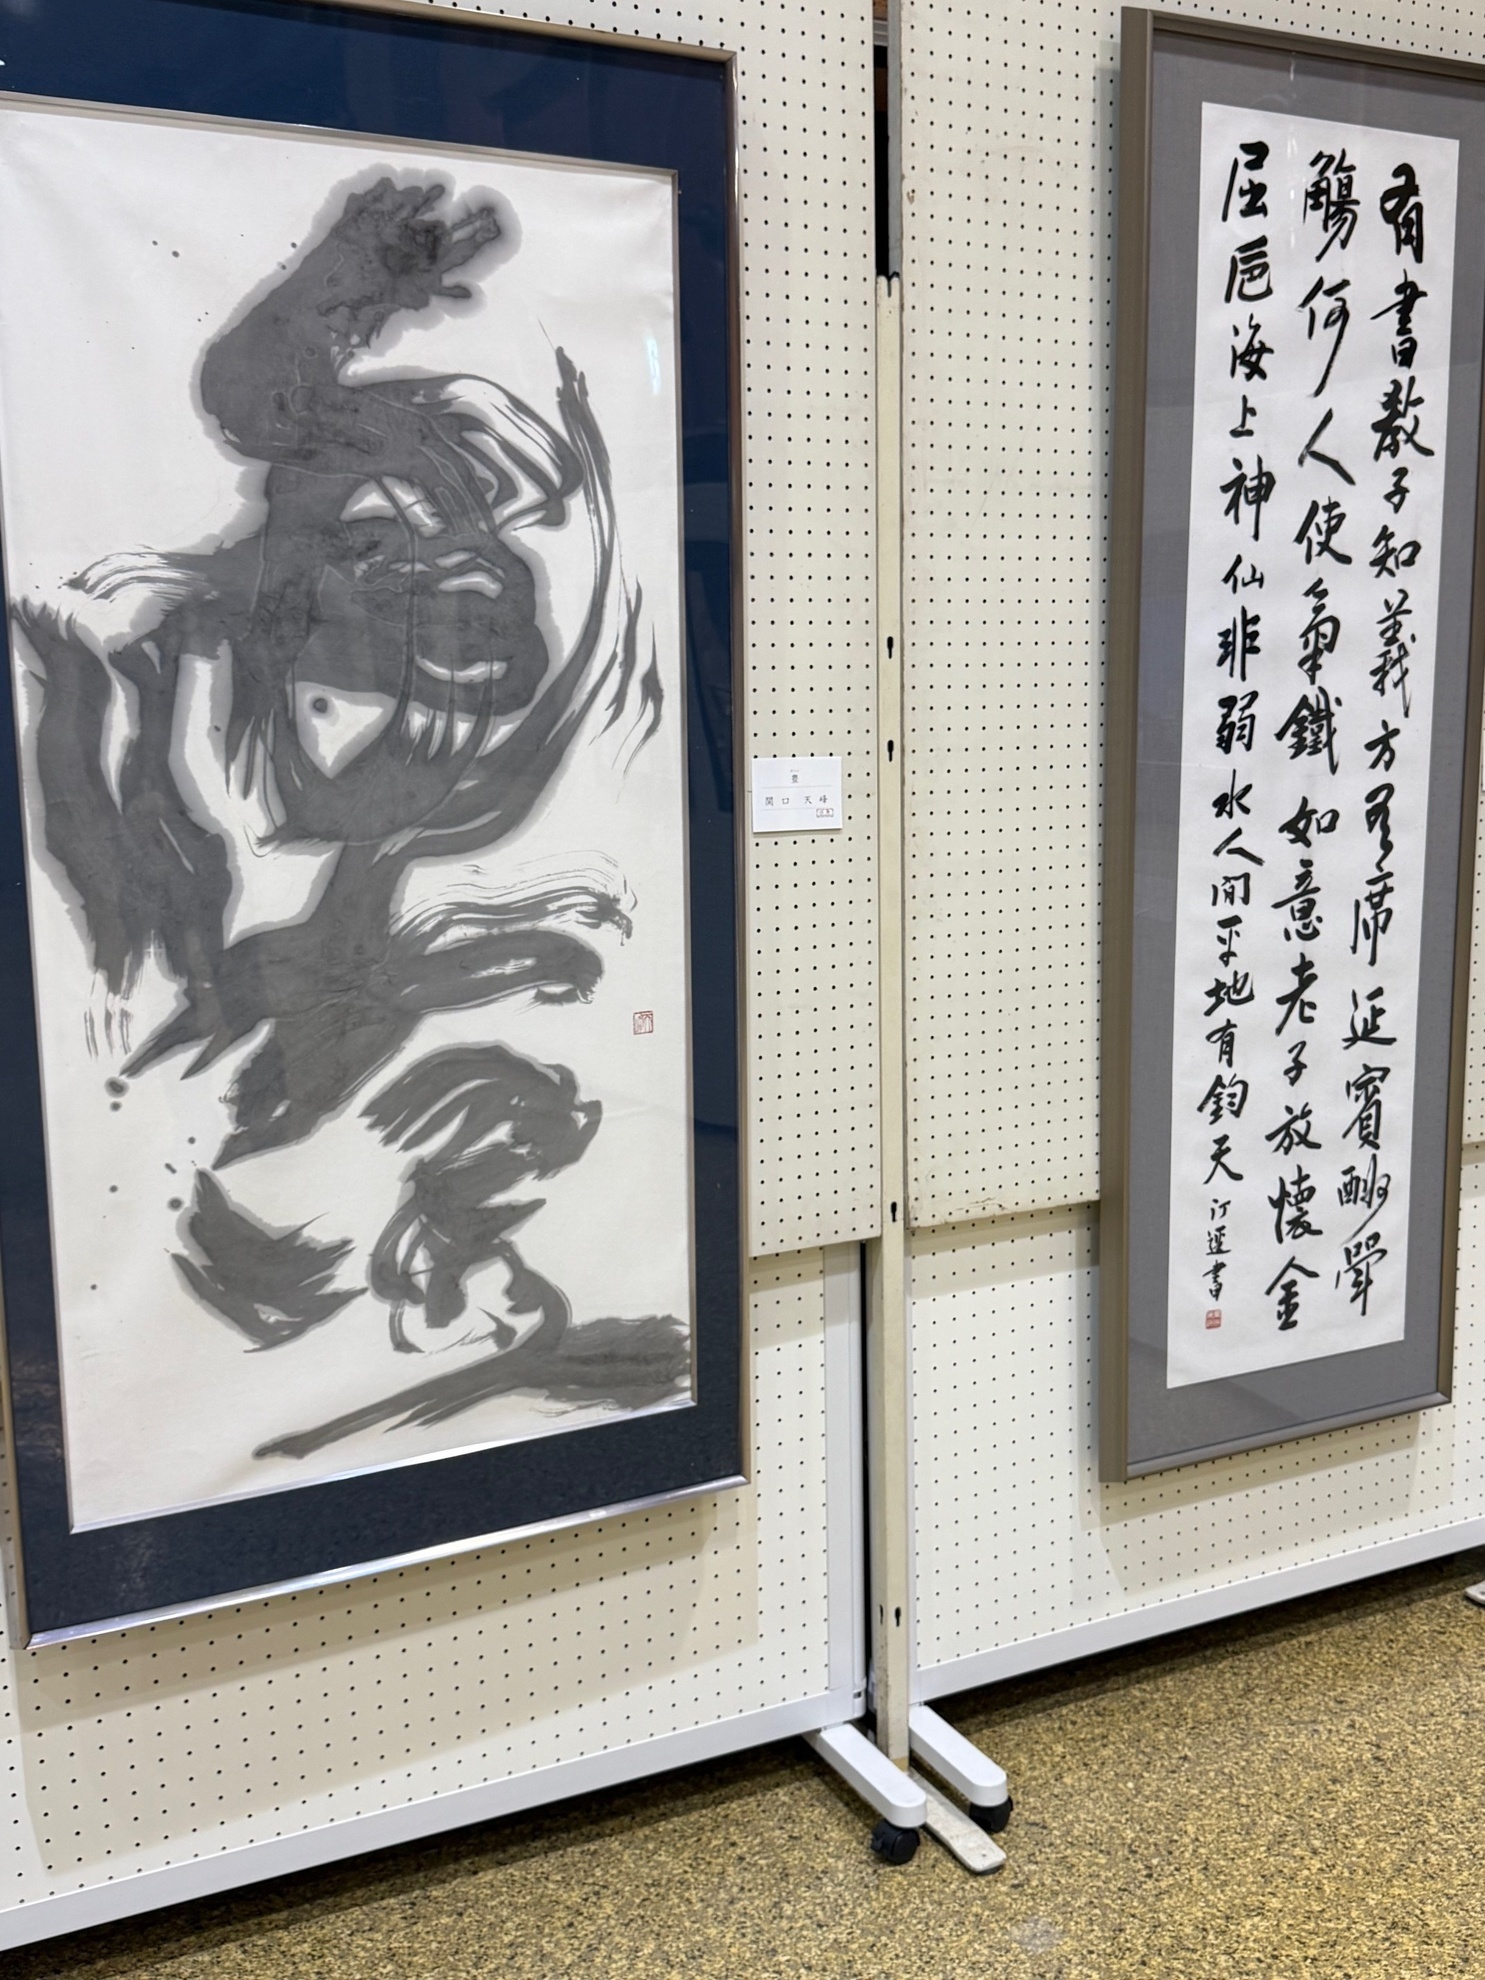 豊
関口 天峰
有書教子知義方有席延賓酬舉
觴何人使氣鐵如意老子放懷金
屈巵海上神仙非弱水人間平地有鈞天 汀逕書